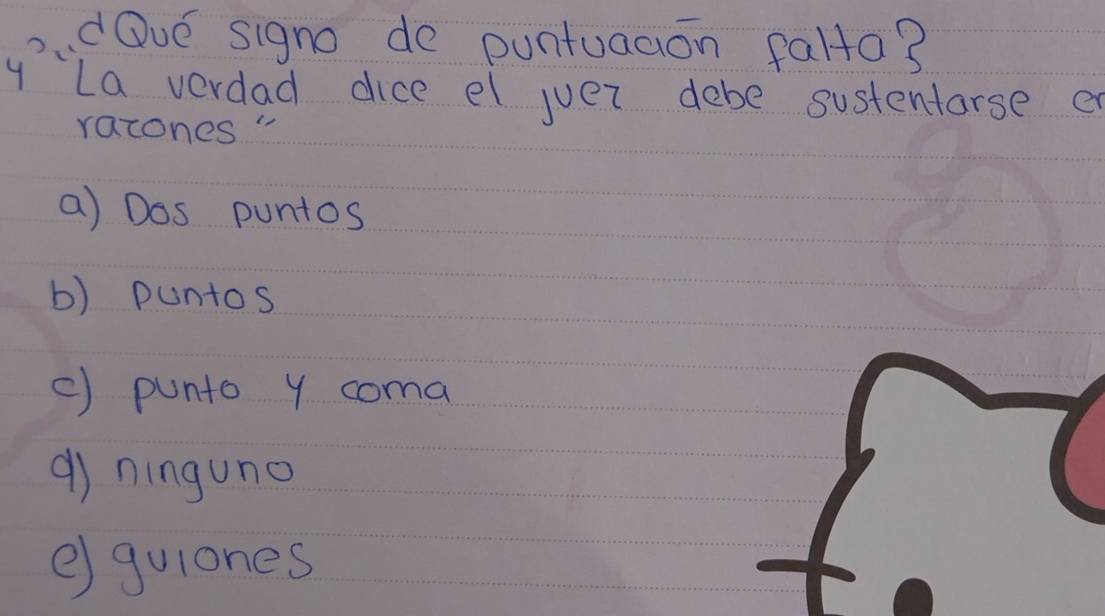 ¿Qué signo de puntuación falta?
4 "La verdad dice el juez debe sustentarse en
razones"
a) Dos puntos
b) puntos
c) punto y coma
d) ninguno
e) guiones